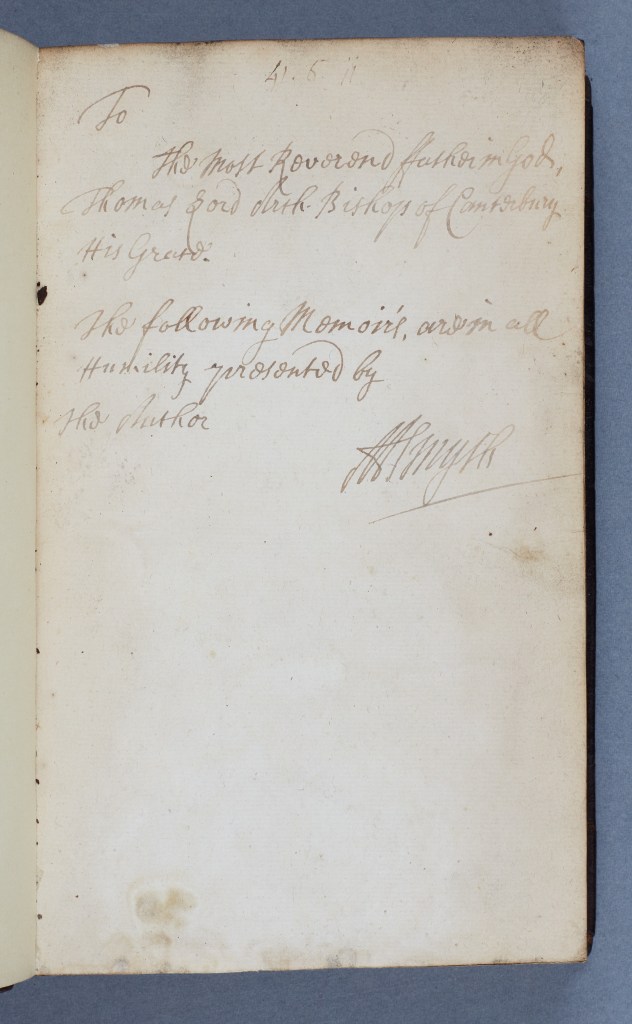 4. 5 11
To
the Most Reverend ffather in God,
Thomas Lord Arch-Bishop of Canterbury
His Grace.
The following Memoirs, are in all
Humility presented by
the Author
MSmyth